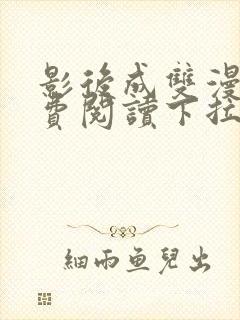 影後成雙漫
費閱讀下拉
細雨魚兒出